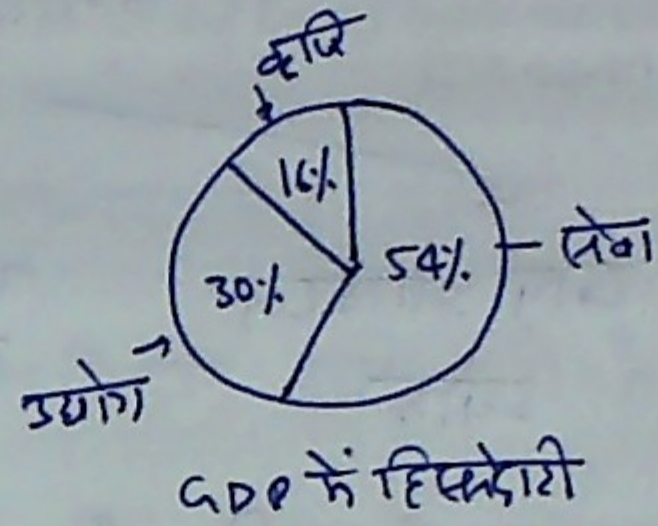 कृषि
16%
54%
सेवा
30%
उद्योग
GDP में हिस्सेदारी